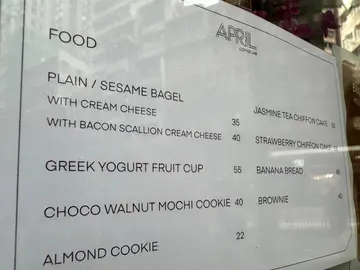 FOOD
APRIL
COFFEE LAB
PLAIN / SESAME BAGEL
WITH CREAM CHEESE 35
WITH BACON SCALLION CREAM CHEESE 40
GREEK YOGURT FRUIT CUP 55
CHOCO WALNUT MOCHI COOKIE 40
ALMOND COOKIE 22
JASMINE TEA CHIFFON CAKE
STRAWBERRY CHIFFON CAKE
BANANA BREAD
BROWNIE